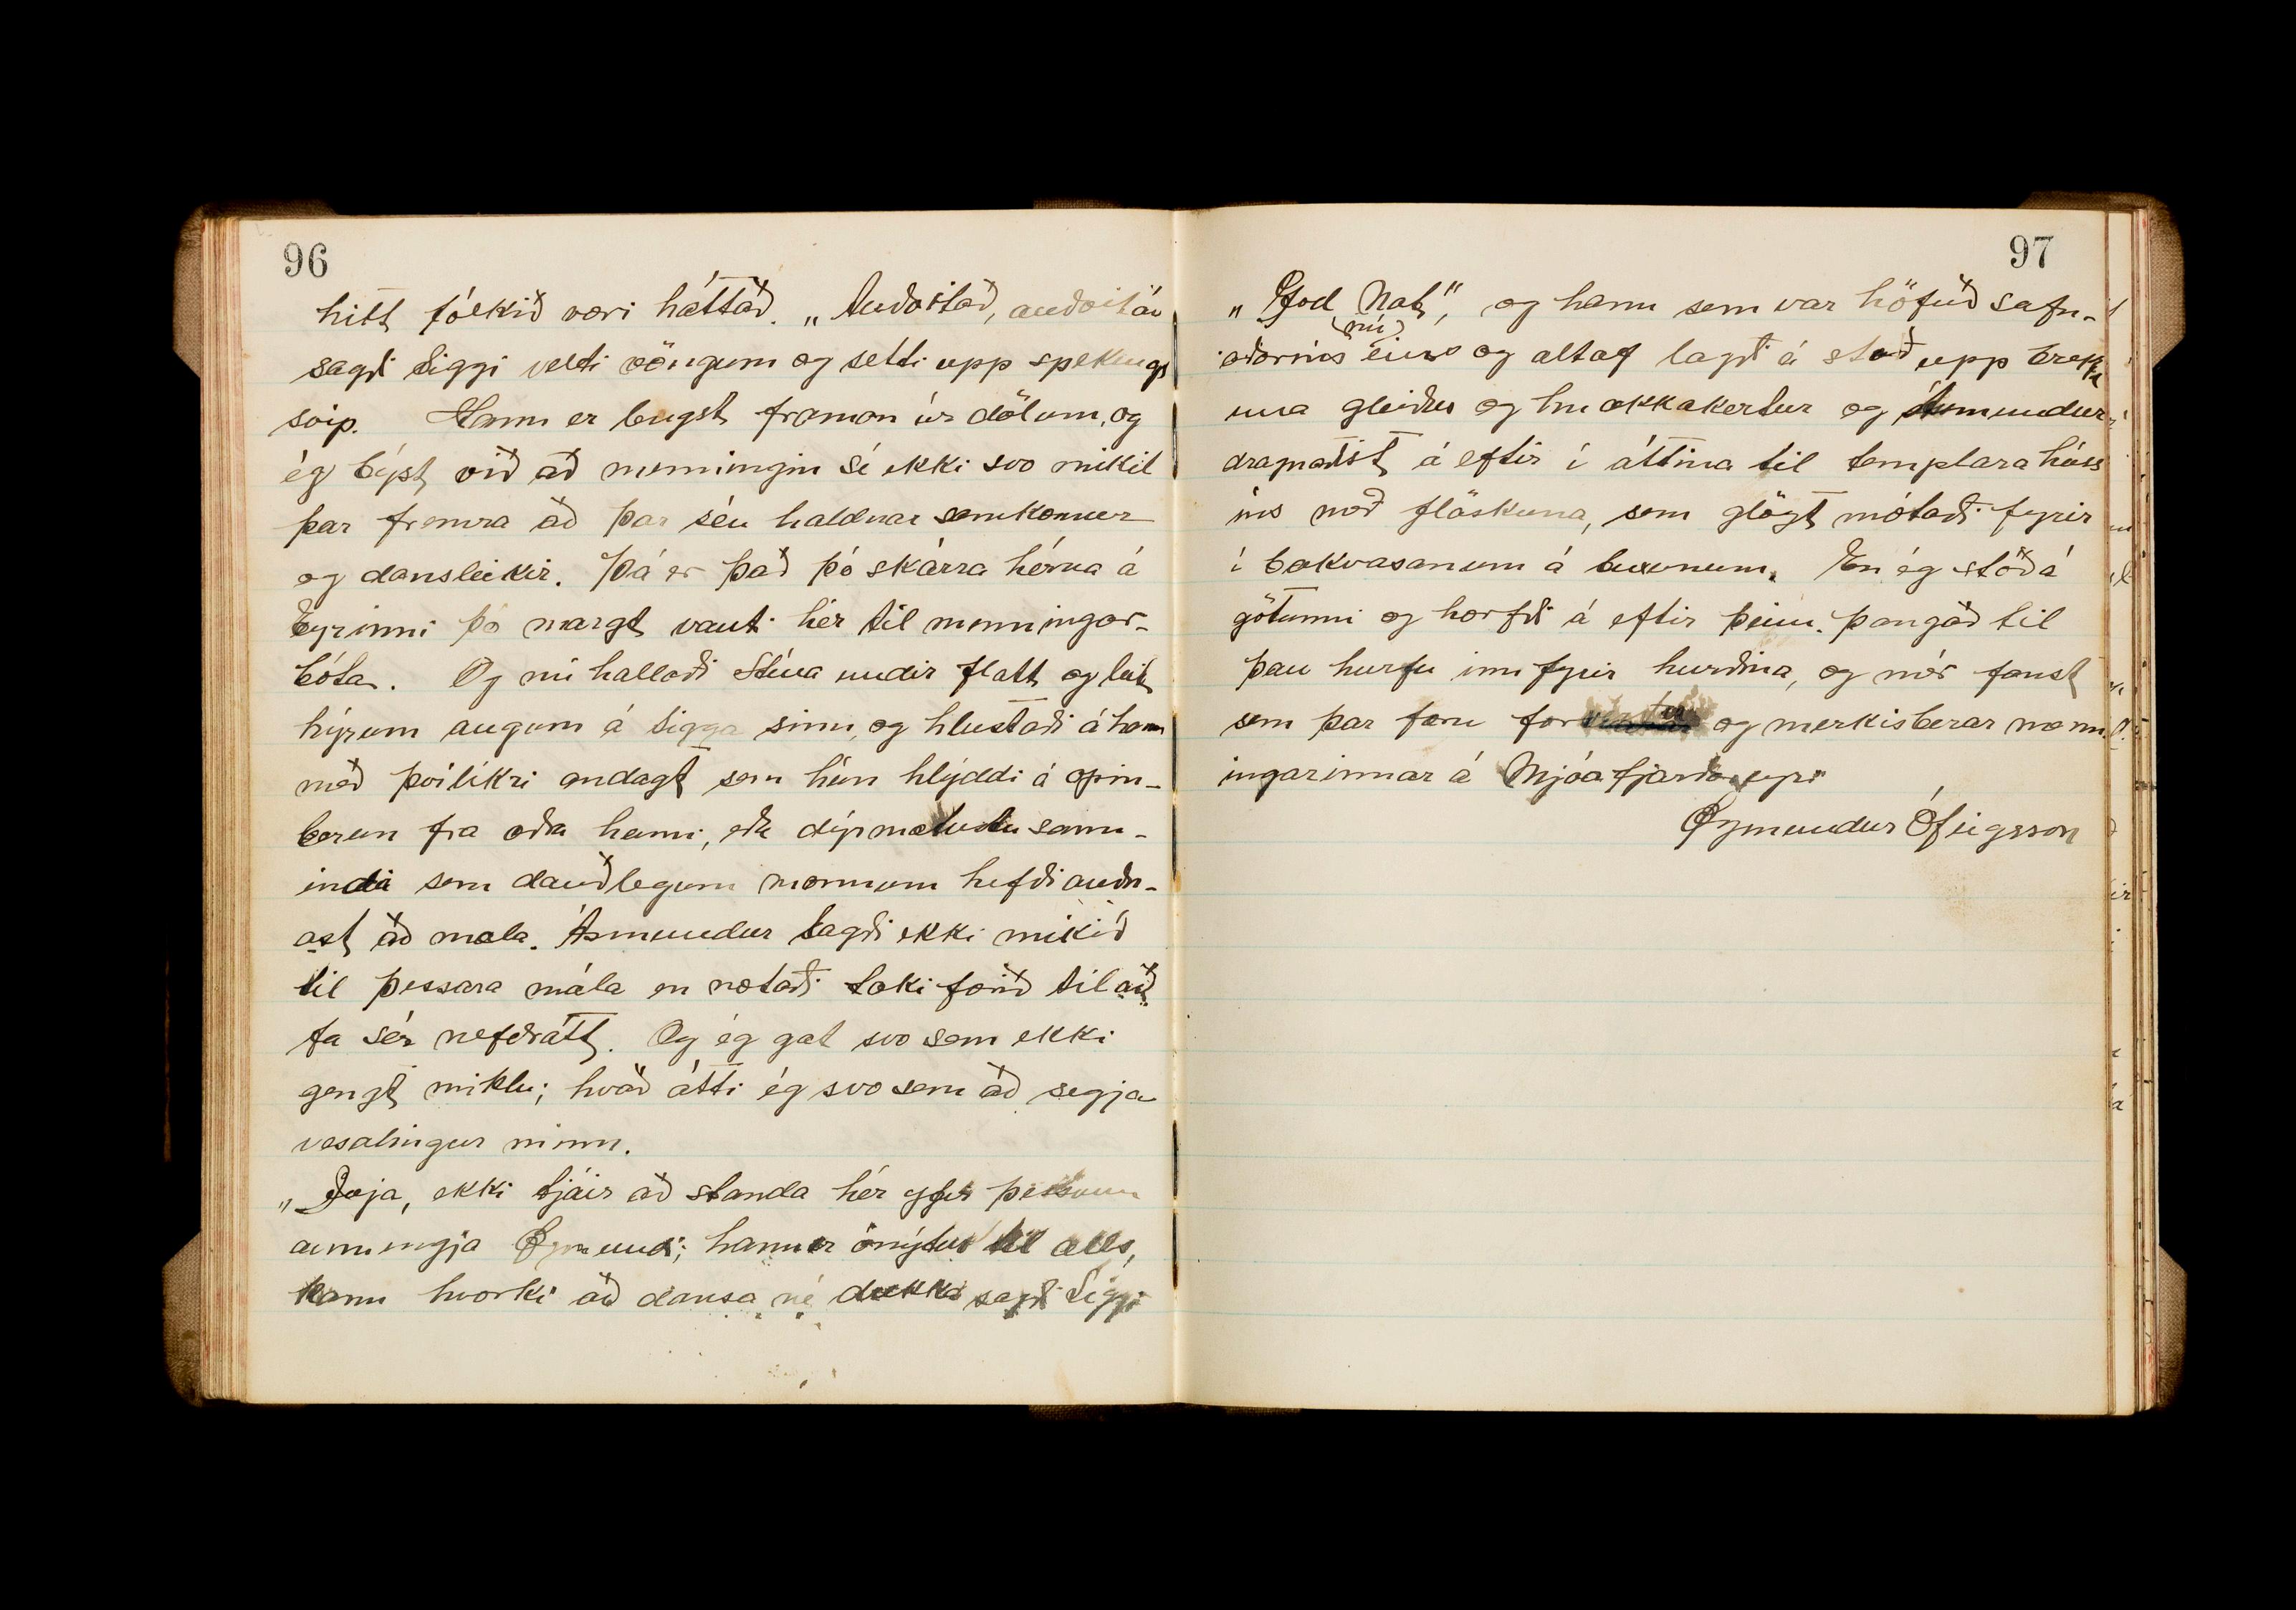 96
hitt fólkið væri háttað. „Auðvitað, auðvitað
sagði Siggi velti vöngum og setti upp spekings
svip. Hann er bugst framan úr dölum, og
ég býst við að menningin sé ekki svo mikil
þar fremra að þar séu haldnar samkomur
og dansleikir. Þá er það þó skárra hérna á
Eyrinni þó margt vanti hér til menningar-
bóta. Og nú hallaði Stína undir flatt og leit
hýrum augum á Sigga sinn, og hlustaði á hann
með þvílíkri andagt sem hún hlýddi á opin-
berun frá æðra heimi, eða dýpmætustu sann-
indi sem dauðlegum mönnum hefði auðn-
ast að mæla. Ásmundur sagði ekki mikið
til þessara mála en notaði tækifærið til að
fá sér nefdrátt. Og ég gat svo sem ekki
gengt miklu; hvað átti ég svo sem að segja
vesalingur minn.
„Jæja, ekki tjáir að standa hér yfir þessum
aumingja Ögmundi; hann er ónýtur til alls,
kann hvorki að dansa né drekka sagði Siggi
97
„God Nat“, og hann sem var höfuð safn-
aðarins
(nú)
eins og altaf lagði á stað upp brekk
una gleiður og hnakkakertur og Ásmundur
dragnaðist á eftir í áttina til templarahúss
ins með flöskuna, sem glögt mótaði fyrir
í bakvasanum á buxunum. En ég stóð á
götunni og horfði á eftir þeim. þangað til
þau hurfu inn fyrir hurðina, og mér fanst
sem þar færu og merkisberar menn
ingarinnar á Mjóafjarðareyri
Ögmundur Ófeigsson